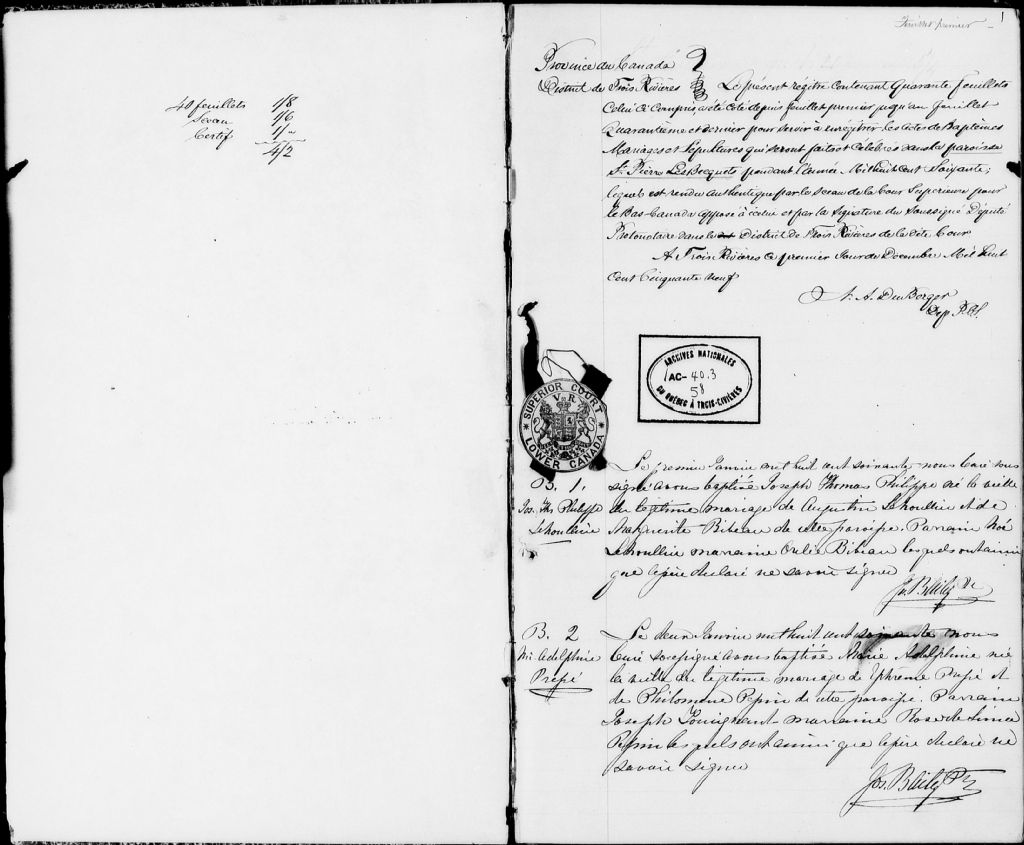 40 feuillets 1/8
Sceau 1/6
Certif 1/"
4/2
Feuillet premier
1
Province du Canada
District de Trois Rivières
Le présent régitre contenant Quarante feuillets
Celui Ci Compris, a été Coté depuis feuillet premier jusqu'au feuillet
Quarantième et dernier pour servir à enrégitrer les Actes de Baptêmes
Mariages et Sépultures qui seront faits et Célébrés dans la paroisse
St. Pierre Les Becquets pendant l'Année Mil huit Cent Soixante;
lequel est rendu authentique par le Sceau de la Cour Supérieure pour
le Bas-Canada apposé à icelui et par la Signature du Soussigné Député
Protonotaire dans le District de Trois Rivières de la dite Cour
A Trois Rivières Ce premier Jour de Décembre Mil huit
Cent Cinquante neuf
A. DenBerger
Dep. P.C.S.
ARCHIVES NATIONALES
AC- 40.3
58
DU QUÉBEC À TROIS-RIVIÈRES
SUPERIOR COURT
V R
LOWER CANADA
B. 1.
Jos. Ths Philippe
Lehoullier
Le premier Janvier mil huit cent soixante nous Curé sous
signé avons baptisé Joseph Thomas Philippe né la veille
du légitime mariage de Augustin Lehoullier et de
Marguerite Bibeau de cette paroisse. Parrain Noé
Lehoullier marraine Bibeau lesquels ont ainsi
que le père déclaré ne savoir signer
Js. Bailey Ptre
B. 2
M. Adelphine
Pressé
Le deux Janvier mil huit cent soixante nous
Curé soussigné avons baptisé Marie Adelphine née
la veille du légitime mariage de Ephrème Pressé et
de Philomène Pepin de cette paroisse. Parrain
Joseph marraine Rose de Lima
Pepin lesquels ont ainsi que le père déclaré ne
savoir signer
Jos. Bailey Ptre